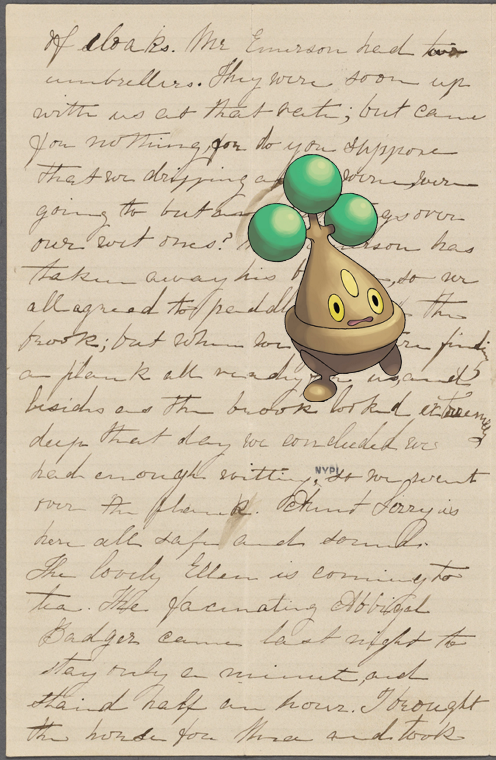 of cloaks. Mr Emerson had two
umbrellers. They were soon up
with us at that rate; but came
for nothing, for do you suppose
that we dripping were
going to but over
our wet ones? has
taken away his so we
all agreed to paddle the
brook; but when we find
a plank all ready
besides as the brook looked extremely
deep that day we concluded we
had enough wetting, so we went
NYPL
over the plank. Aunt is
here all safe and sound.
The lovely Ellen is coming to
tea. The facinating Abbigal
Badger came last night to
stay only a minute, and
staid half an hour. I brought
the horse for three and took